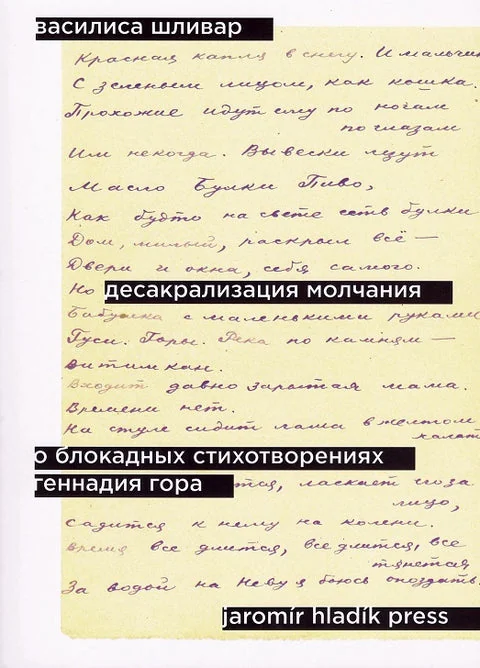 василиса шливар
Красная капля в снегу. И мальчик
С зеленым лицом, как кошка.
Прохожие идут ему по ногам
по глазам
Им некогда. Вывески лезут
Масло Булки Пиво,
Как будто на свете есть булки
Дом, милый, раскрыл всё —
Двери и окна, себя самого.
Но
десакрализация молчания
Бабушка с маленькими руками
Гуси. Горы. Река по камням —
Витимкан.
Входит давно зарытая мама.
Времени нет.
На стуле сидит лама в желтом
халате
о блокадных стихотворениях
геннадия гора
ется, ласкает его за
лицо,
Садится к нему на колени.
Время все длится, все длится, все
тянется
За водой на Неву я боюсь опоздать.
jaromír hladík press